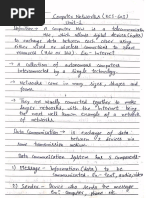 Computer Networks (KCS-603)
Unit-1
Definition:- A Computer N/w is a telecommunication
n/w which allows digital devices (nodes) to
exchange data between each other using
either wired or wireless connections to share
resources
→ A collection of autonomous computers
interconnected by a single technology.
→ Networks come in many sizes, shapes and
forms.
→ They are usually connected together to make
larger networks, with the Internet being
the most well-known example of a network
of networks.
Data Communication → is exchange of data
between devices via
some transmission medium.
Data Communication system has 5 components-
1) Message - Information (data) to be
communicated Ex- text, audio, video
2) Sender - Device who sends the message
Ex- Computer, phone etc